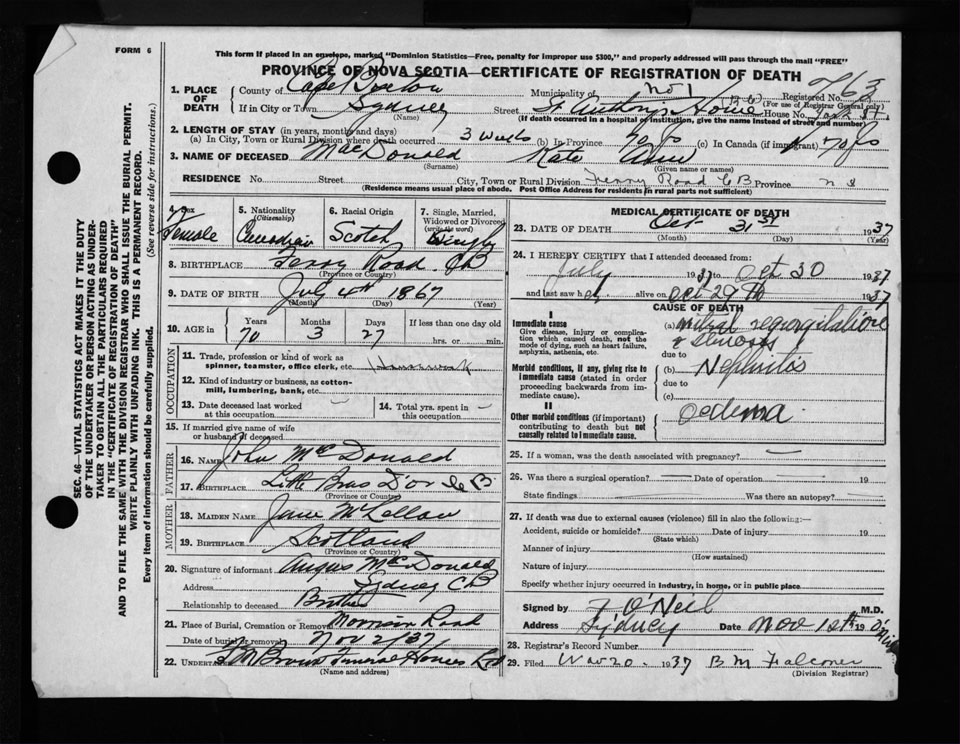 FORM 6
This form if placed in an envelope, marked "Dominion Statistics—Free, penalty for improper use $300," and properly addressed will pass through the mail "FREE"
PROVINCE OF NOVA SCOTIA—CERTIFICATE OF REGISTRATION OF DEATH
SEC. 46—VITAL STATISTICS ACT MAKES IT THE DUTY
OF THE UNDERTAKER OR PERSON ACTING AS UNDER-
TAKER TO OBTAIN ALL THE PARTICULARS REQUIRED
IN THE "CERTIFICATE OF REGISTRATION OF DEATH"
AND TO FILE THE SAME WITH THE DIVISION REGISTRAR WHO SHALL ISSUE THE BURIAL PERMIT.
WRITE PLAINLY WITH UNFADING INK. THIS IS A PERMANENT RECORD.
Every item of information should be carefully supplied. (See reverse side for instructions.)
1. PLACE OF DEATH
County of Cape Breton Municipality of No 1 Registered No. 763
(For use of Registrar General only)
If in City or Town Sydney Street St Anthony's Home House No.
(Name) (If death occurred in a hospital or institution, give the name instead of street and number)
2. LENGTH OF STAY (in years, months and days)
(a) In City, Town or Rural Division where death occurred 3 weeks (b) In Province 70 yrs (c) In Canada (if immigrant) 70 yrs
3. NAME OF DECEASED MacDonald Kate Ann
(Surname) (Given name or names)
RESIDENCE No. Street City, Town or Rural Division Ferry Road CB Province N S
(Residence means usual place of abode. Post Office Address for residents in rural parts not sufficient)
4. Sex Female
5. Nationality (Citizenship) Canadian
6. Racial Origin Scotch
7. Single, Married, Widowed or Divorced (write the word) Single
8. BIRTHPLACE Ferry Road CB
(Province or Country)
9. DATE OF BIRTH July 4th 1867
(Month) (Day) (Year)
10. AGE in Years 70 Months 3 Days 27 If less than one day old hrs. or min.
OCCUPATION
11. Trade, profession or kind of work as spinner, teamster, office clerk, etc. Housework
12. Kind of industry or business, as cotton-mill, lumbering, bank, etc.
13. Date deceased last worked at this occupation
14. Total yrs. spent in this occupation
15. If married give name of wife or husband of deceased
FATHER
16. NAME John McDonald
17. BIRTHPLACE Little Bras D'or C B
(Province or County)
MOTHER
18. MAIDEN NAME Jane McLellan
19. BIRTHPLACE Scotland
(Province or Country)
20. Signature of informant Angus McDonald
Address Sydney CB
Relationship to deceased Brother
21. Place of Burial, Cremation or Removal Morrison Road
Date of burial or removal Nov 2/37
22. UNDERTAKER Funeral Homes Ltd
(Name and address)
MEDICAL CERTIFICATE OF DEATH
23. DATE OF DEATH Oct 31st 1937
(Month) (Day) (Year)
24. I HEREBY CERTIFY that I attended deceased from:
July 1937 to Oct 30 1937
and last saw her alive on Oct 29th 1937
CAUSE OF DEATH
I
Immediate cause
Give disease, injury or complication which caused death, not the mode of dying, such as heart failure, asphyxia, asthenia, etc.
(a) mitral regurgitation
& stenosis
due to
Morbid conditions, if any, giving rise to immediate cause (stated in order proceeding backwards from immediate cause).
(b) Nephritis
due to
(c)
II
Other morbid conditions (if important) contributing to death but not causally related to immediate cause.
Oedema
25. If a woman, was the death associated with pregnancy?
26. Was there a surgical operation? Date of operation 19
State findings Was there an autopsy?
27. If death was due to external causes (violence) fill in also the following:—
Accident, suicide or homicide? Date of injury 19
(State which)
Manner of injury
(How sustained)
Nature of injury
Specify whether injury occurred in industry, in home, or in public place
Signed by J O'Neil M.D.
Address Sydney Date Nov 12th 19
28. Registrar's Record Number
29. Filed Nov 20 1937 B M Falconer
(Division Registrar)